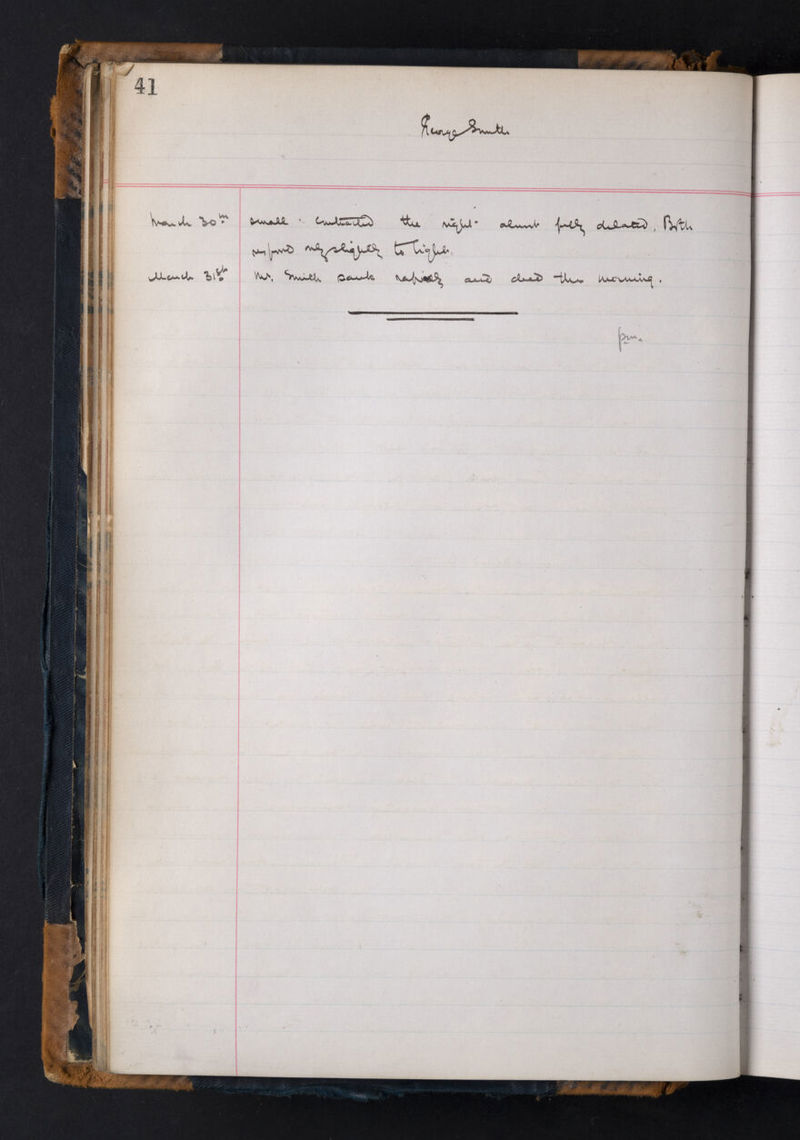 41
George Smith
March 30th small & contracted the right almost fully dilated. Both
respond only slightly to light.
March 31st Mr. Smith sank rapidly and died this morning.